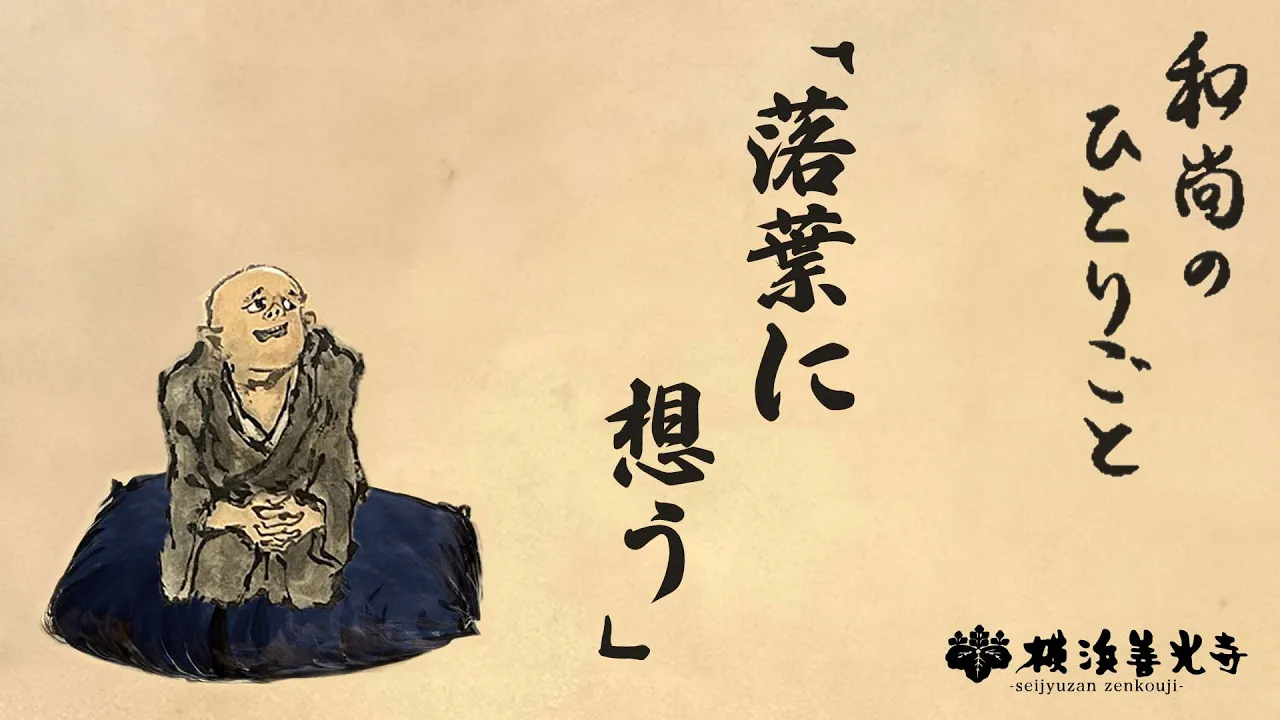 和尚の
ひとりごと
「落葉に
想う」
横浜善光寺
-seijyuzan zenkouji-